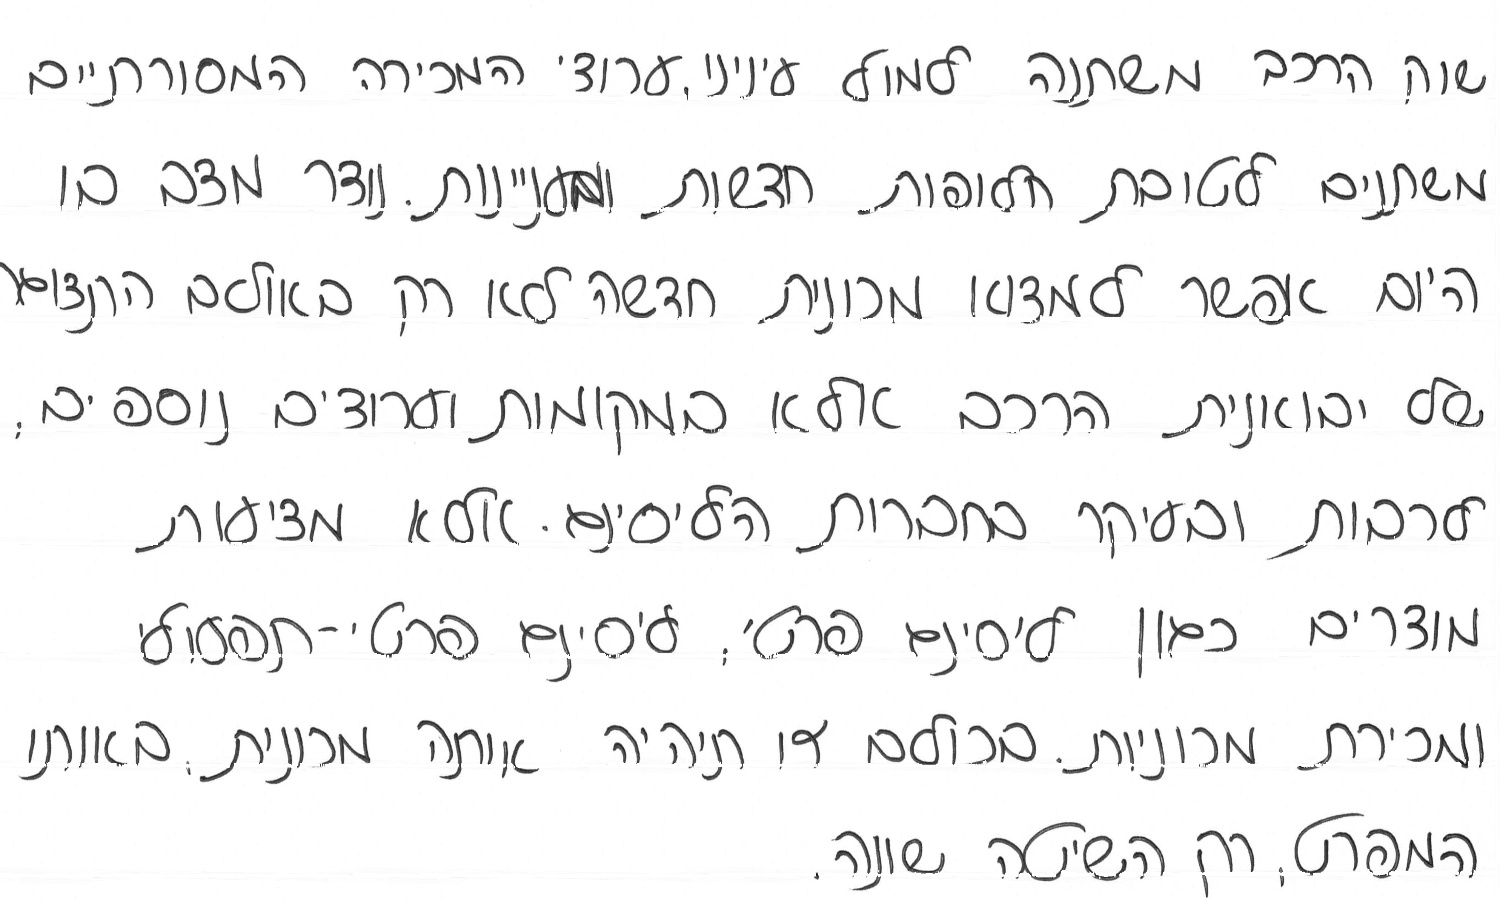 שוק הרכב משתנה למול עינינו, ערוצי המכירה המסורתיים
משתנים לטובת חלופות חדשות ומעניינות. נוצר מצב בו
היום אפשר למצוא מכונית חדשה לא רק באולם התצוגה
של יבואנית הרכב אלא במקומות וערוצים נוספים,
לרבות ובעיקר בחברות הליסינג. אלא מציעות
מוצרים כגון ליסינג פרטי, ליסינג פרטי-תפעולי
ומכירת מכוניות. בכולם זו תיהיה אותה מכונית, באותו
המפרט, רק השיטה שונה.